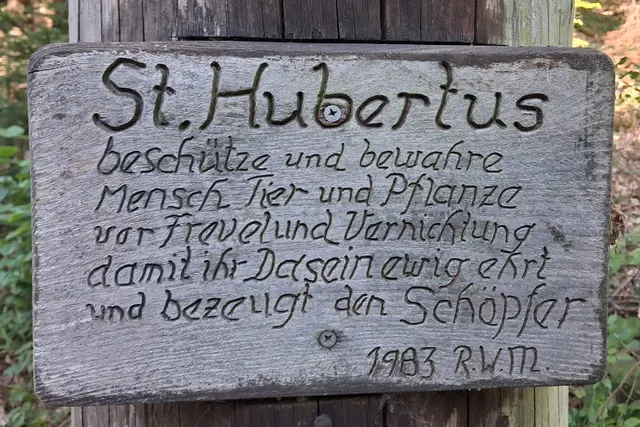 St. Hubertus
beschütze und bewahre
Mensch Tier und Pflanze
vor Frevel und Vernichtung
damit ihr Dasein ewig ehrt
und bezeugt den Schöpfer
1983 R.W.M.